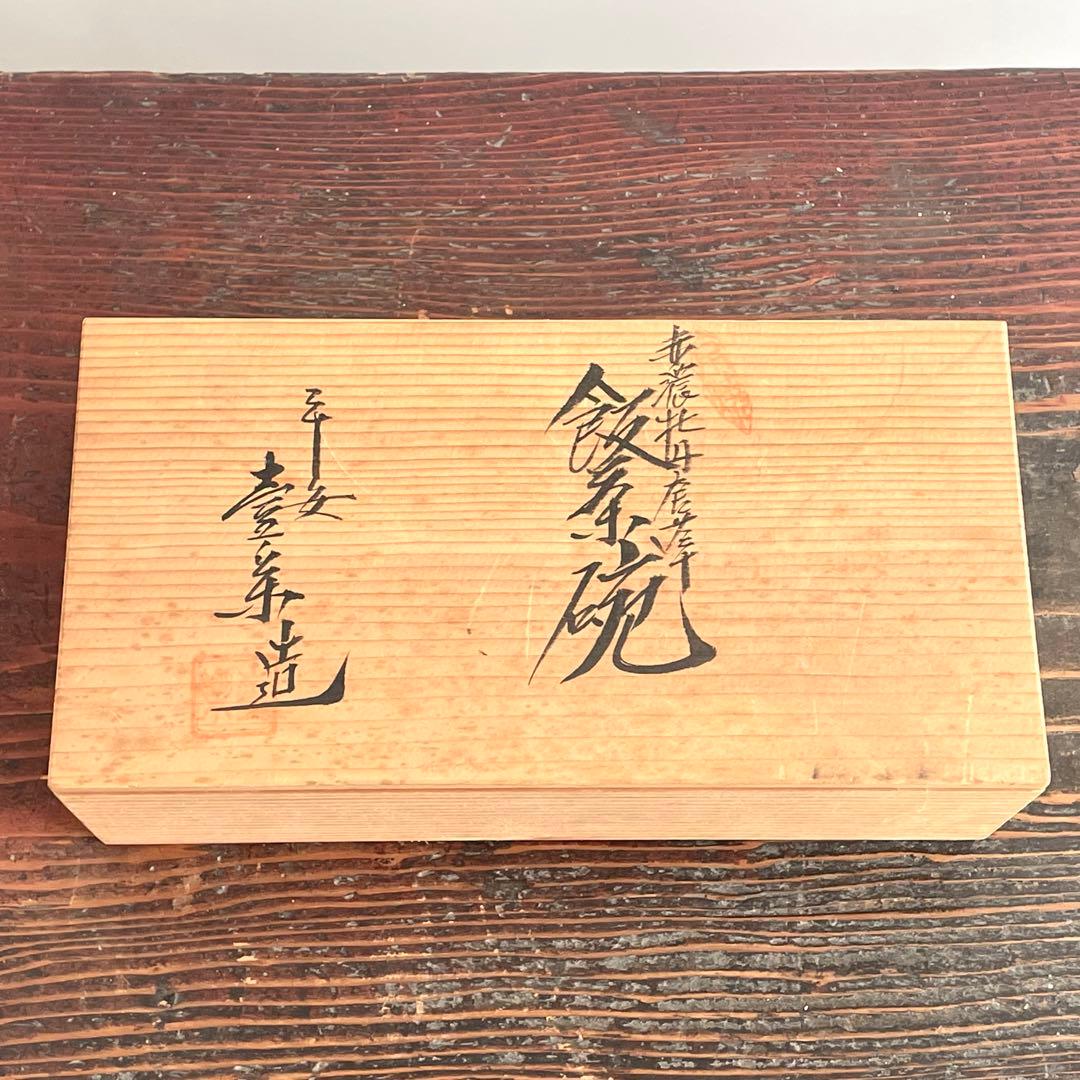 赤濃牡丹唐草
飯茶碗
平安
壹楽造